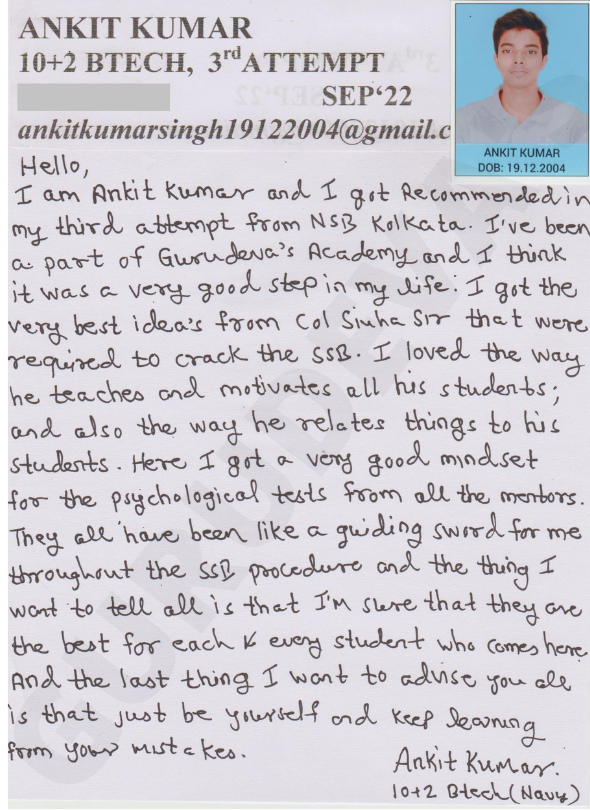 ANKIT KUMAR
10+2 BTECH, 3rd ATTEMPT
SEP‘22
ankitkumarsingh19122004@gmail.c
ANKIT KUMAR
DOB: 19.12.2004
Hello,
I am Ankit Kumar and I got Recommended in
my third attempt from NSB Kolkata. I've been
a part of Gurudeva's Academy and I think
it was a very good step in my life. I got the
very best idea's from Col Sinha Sir that were
required to crack the SSB. I loved the way
he teaches and motivates all his students;
and also the way he relates things to his
students. Here I got a very good mindset
for the psychological tests from all the mentors.
They all have been like a guiding sword for me
throughout the SSB procedure and the thing I
want to tell all is that I'm sure that they are
the best for each & every student who comes here.
And the last thing I want to advise you all
is that just be yourself and keep learning
from your mistakes.
Ankit Kumar.
10+2 Btech (Navy)
GURUDEVA